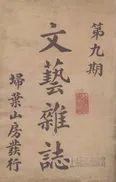 第九期
文藝雜誌
掃葉山房發行